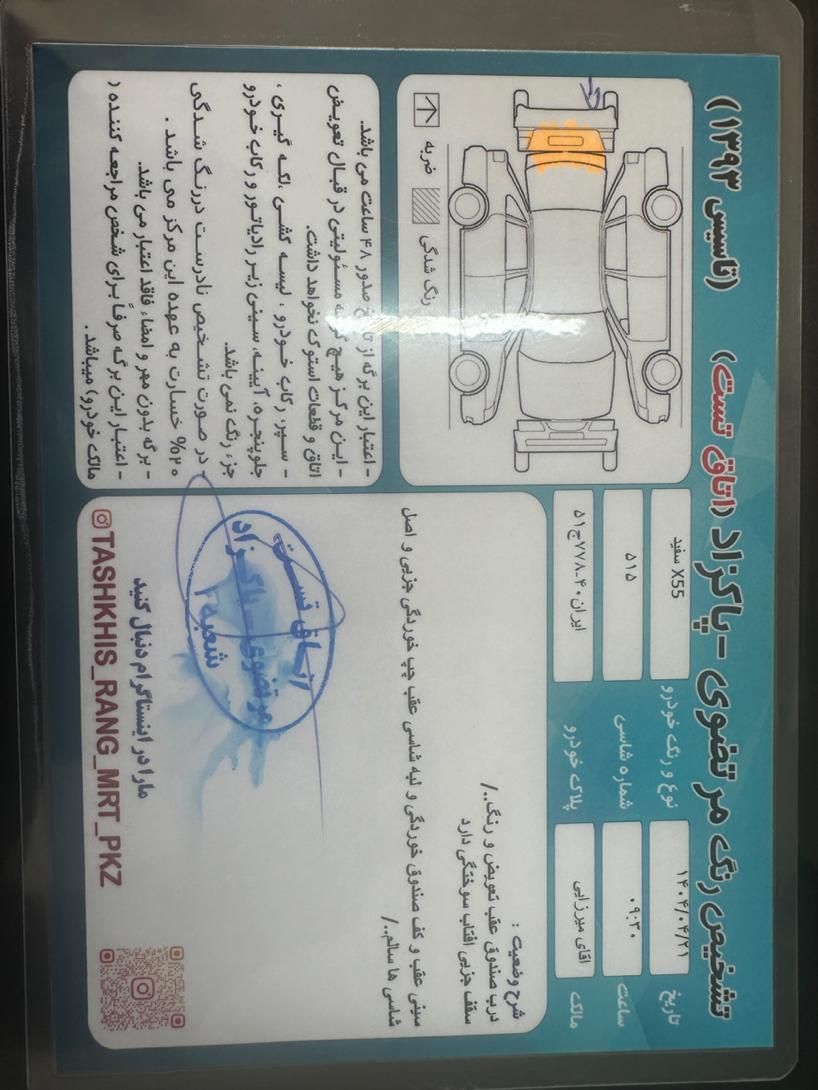 تشخیص رنگ مرتضوی - پاکزاد (اتاق تست) (تاسیس ۱۳۹۳)
تاریخ ۱۴۰۴/۰۴/۲۱ نوع و رنگ خودرو X55 سفید
ساعت ۰۹:۳۰ شماره شاسی ۵۱۵
مالک اقای میرزایی پلاک خودرو ایران ۴۰-۷۷۸ج۵۱
شرح وضعیت :
درب صندوق عقب تعویض و رنگ../
سقف جزیی افتاب سوختگی دارد
سینی عقب و کف صندوق خوردگی و لبه شاسی عقب چپ خوردگی جزیی و اصل
شاسی ها سالم../
ضربه
رنگ شدگی
- اعتبار این برگه از تاریخ صدور ۴۸ ساعت می باشد.
- این مرکز هیچ گونه مسئولیتی در قبال تعویض
اتاق و قطعات استوک نخواهد داشت.
- سپر، رکاب خودرو ، لیسه کشی ،لکه گیری ،
جلوپنجره، آیینه، سینی زیر رادیاتور و رکاب خودرو
جزء رنگ نمی باشد.
- در صورت تشخیص نادرست دررنگ شدگی
۲۰% خسارت به عهده این مرکز می باشد .
- برگه بدون مهر و امضاء فاقد اعتبار می باشد.
- اعتبار این برگه صرفاً برای شخص مراجعه کننده (
مالک خودرو) میباشد .
اتاق تست
مرتضوی پاکزاد
شعبه ۲
مارا در اینستاگرام دنبال کنید
@TASHKHIS_RANG_MRT_PKZ